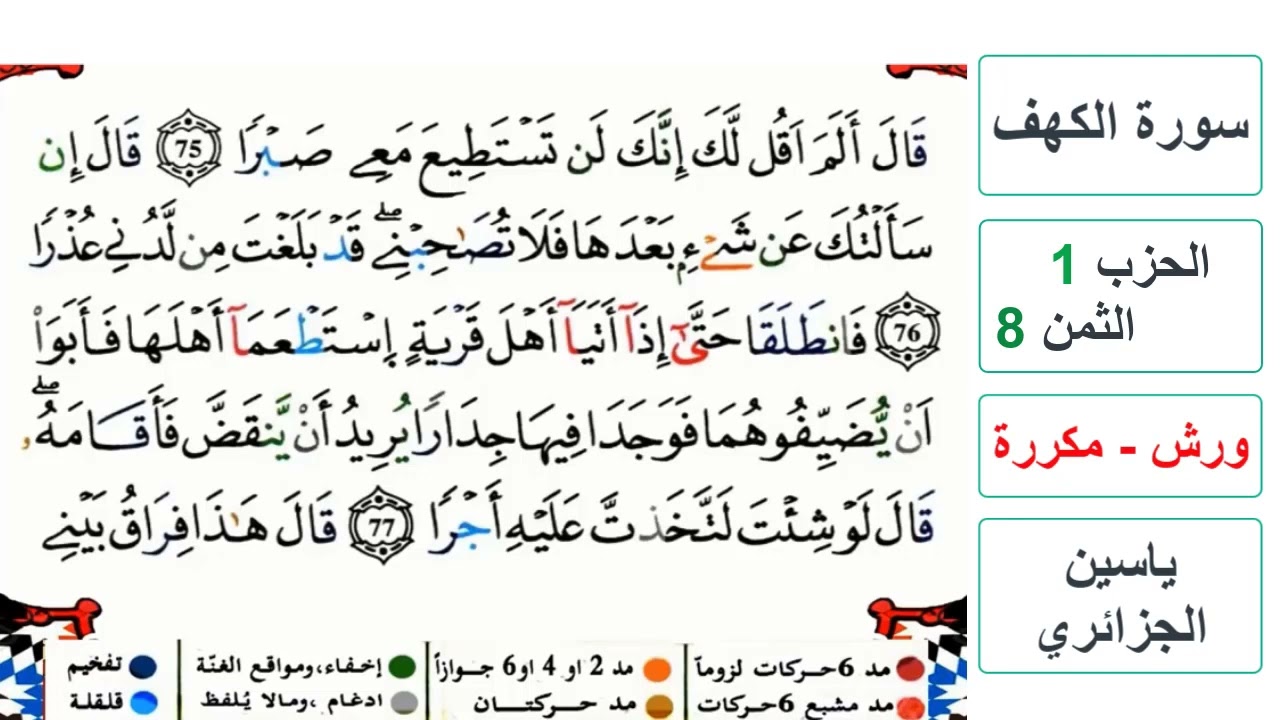 قَالَ أَلَمَ اَقُل لَّكَ إِنَّكَ لَن تَسْتَطِيعَ مَعِے صَبْرًا 75 قَالَ إِن
سَأَلْتُكَ عَن شَےْءِۢ بَعْدَهَا فَلَا تُصَٰحِبْنِےۖ قَدْ بَلَغْتَ مِن لَّدُنِے عُذْرًا
76 فَانطَلَقَا حَتَّىٰٓ إِذَآ أَتَيَآ أَهْلَ قَرْيَةٍ اِسْتَطْعَمَآ أَهْلَهَا فَأَبَوْاْ
اَنْ يُّضَيِّفُوهُمَا فَوَجَدَا فِيهَا جِدَارًا يُرِيدُ أَنْ يَّنقَضَّ فَأَقَامَهُۥۖ
قَالَ لَوْ شِئْتَ لَتَّخَذتَّ عَلَيْهِ أَجْرًا 77 قَالَ هَٰذَا فِرَاقُ بَيْنِے
مد 6 حركات لزوماً
مد 2 او 4 او 6 جوازاً
إخفاء، ومواقع الغنّة
تفخيم
مد مشبع 6 حركات
مد حركتان
ادغام، ومالا يُلفظ
قلقلة
سورة الكهف
الحزب 1
الثمن 8
ورش - مكررة
ياسين
الجزائري